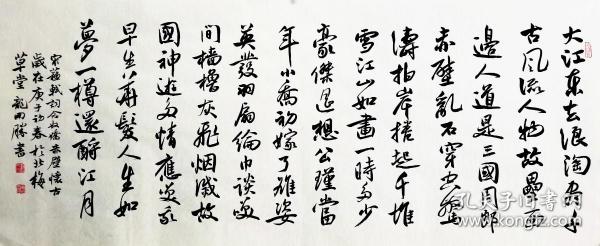 大江東去浪淘盡千
古風流人物故壘西
邊人道是三國周郎
赤壁亂石穿空驚
濤拍岸捲起千堆
雪江山如畫一時多少
豪傑遥想公瑾當
年小喬初嫁了雄姿
英發羽扇綸巾談笑
間檣櫓灰飛烟滅故
國神遊多情應笑我
早生華髮人生如
夢一樽還酹江月
宋蘇軾詞念奴嬌赤壁懷古
歲在庚子初春於北梅
草堂 勝書
孔夫子旧书网